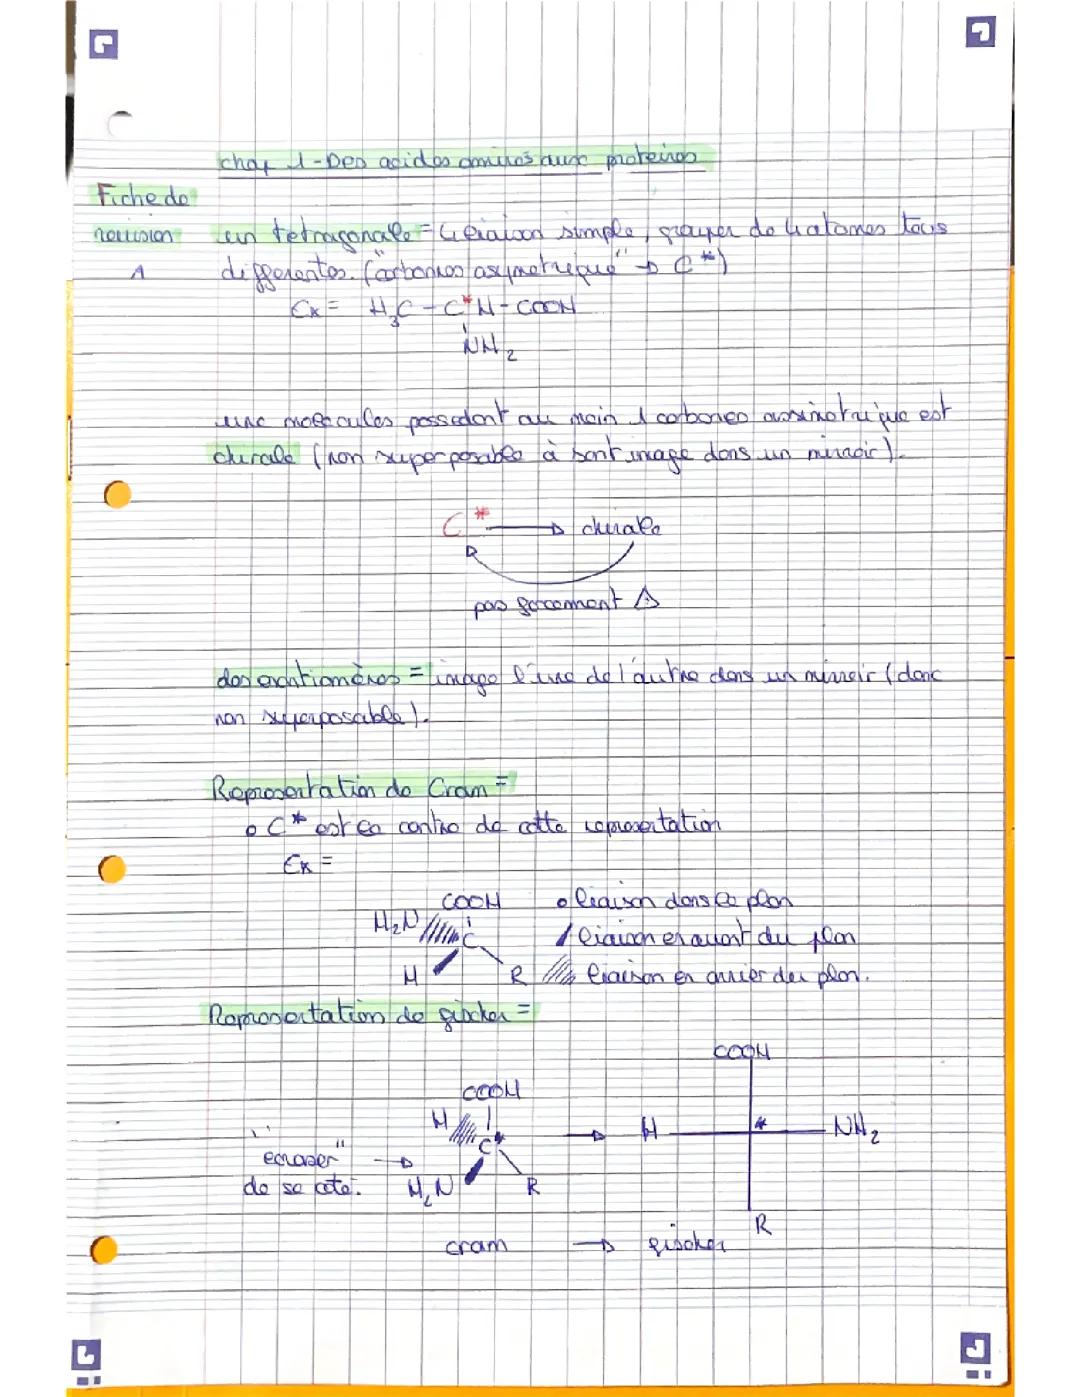 chap 1 - Des acides aminés aux proteines
Fiche de
revision
A
un tetragonale = 4 liaison simple, grouper de 4 atomes tous
differentes. ("carbones asymetrique" → C*)
Ex = H3C - C*H - COOH
NH2
une molecules possedant au moin 1 carbones assimetrique est
chirale (non superposable à sont image dans un miroir).
C* → chirale
pas forcement ⚠
des enantiomères = image l'une de l'autre dans un miroir (donc
non superposable).
Representation de Cram =
o C* est le centre de cette representation
Ex =
COOH
H2N
C
H
R
o liaison dans le plan
liaison en avant du plan
liaison en arrier du plan.
Representation de fischer =
COOH
COOH
H
C*
→ H * NH2
"ecraser" →
de se coté.
H2N
R
R
cram → fischer